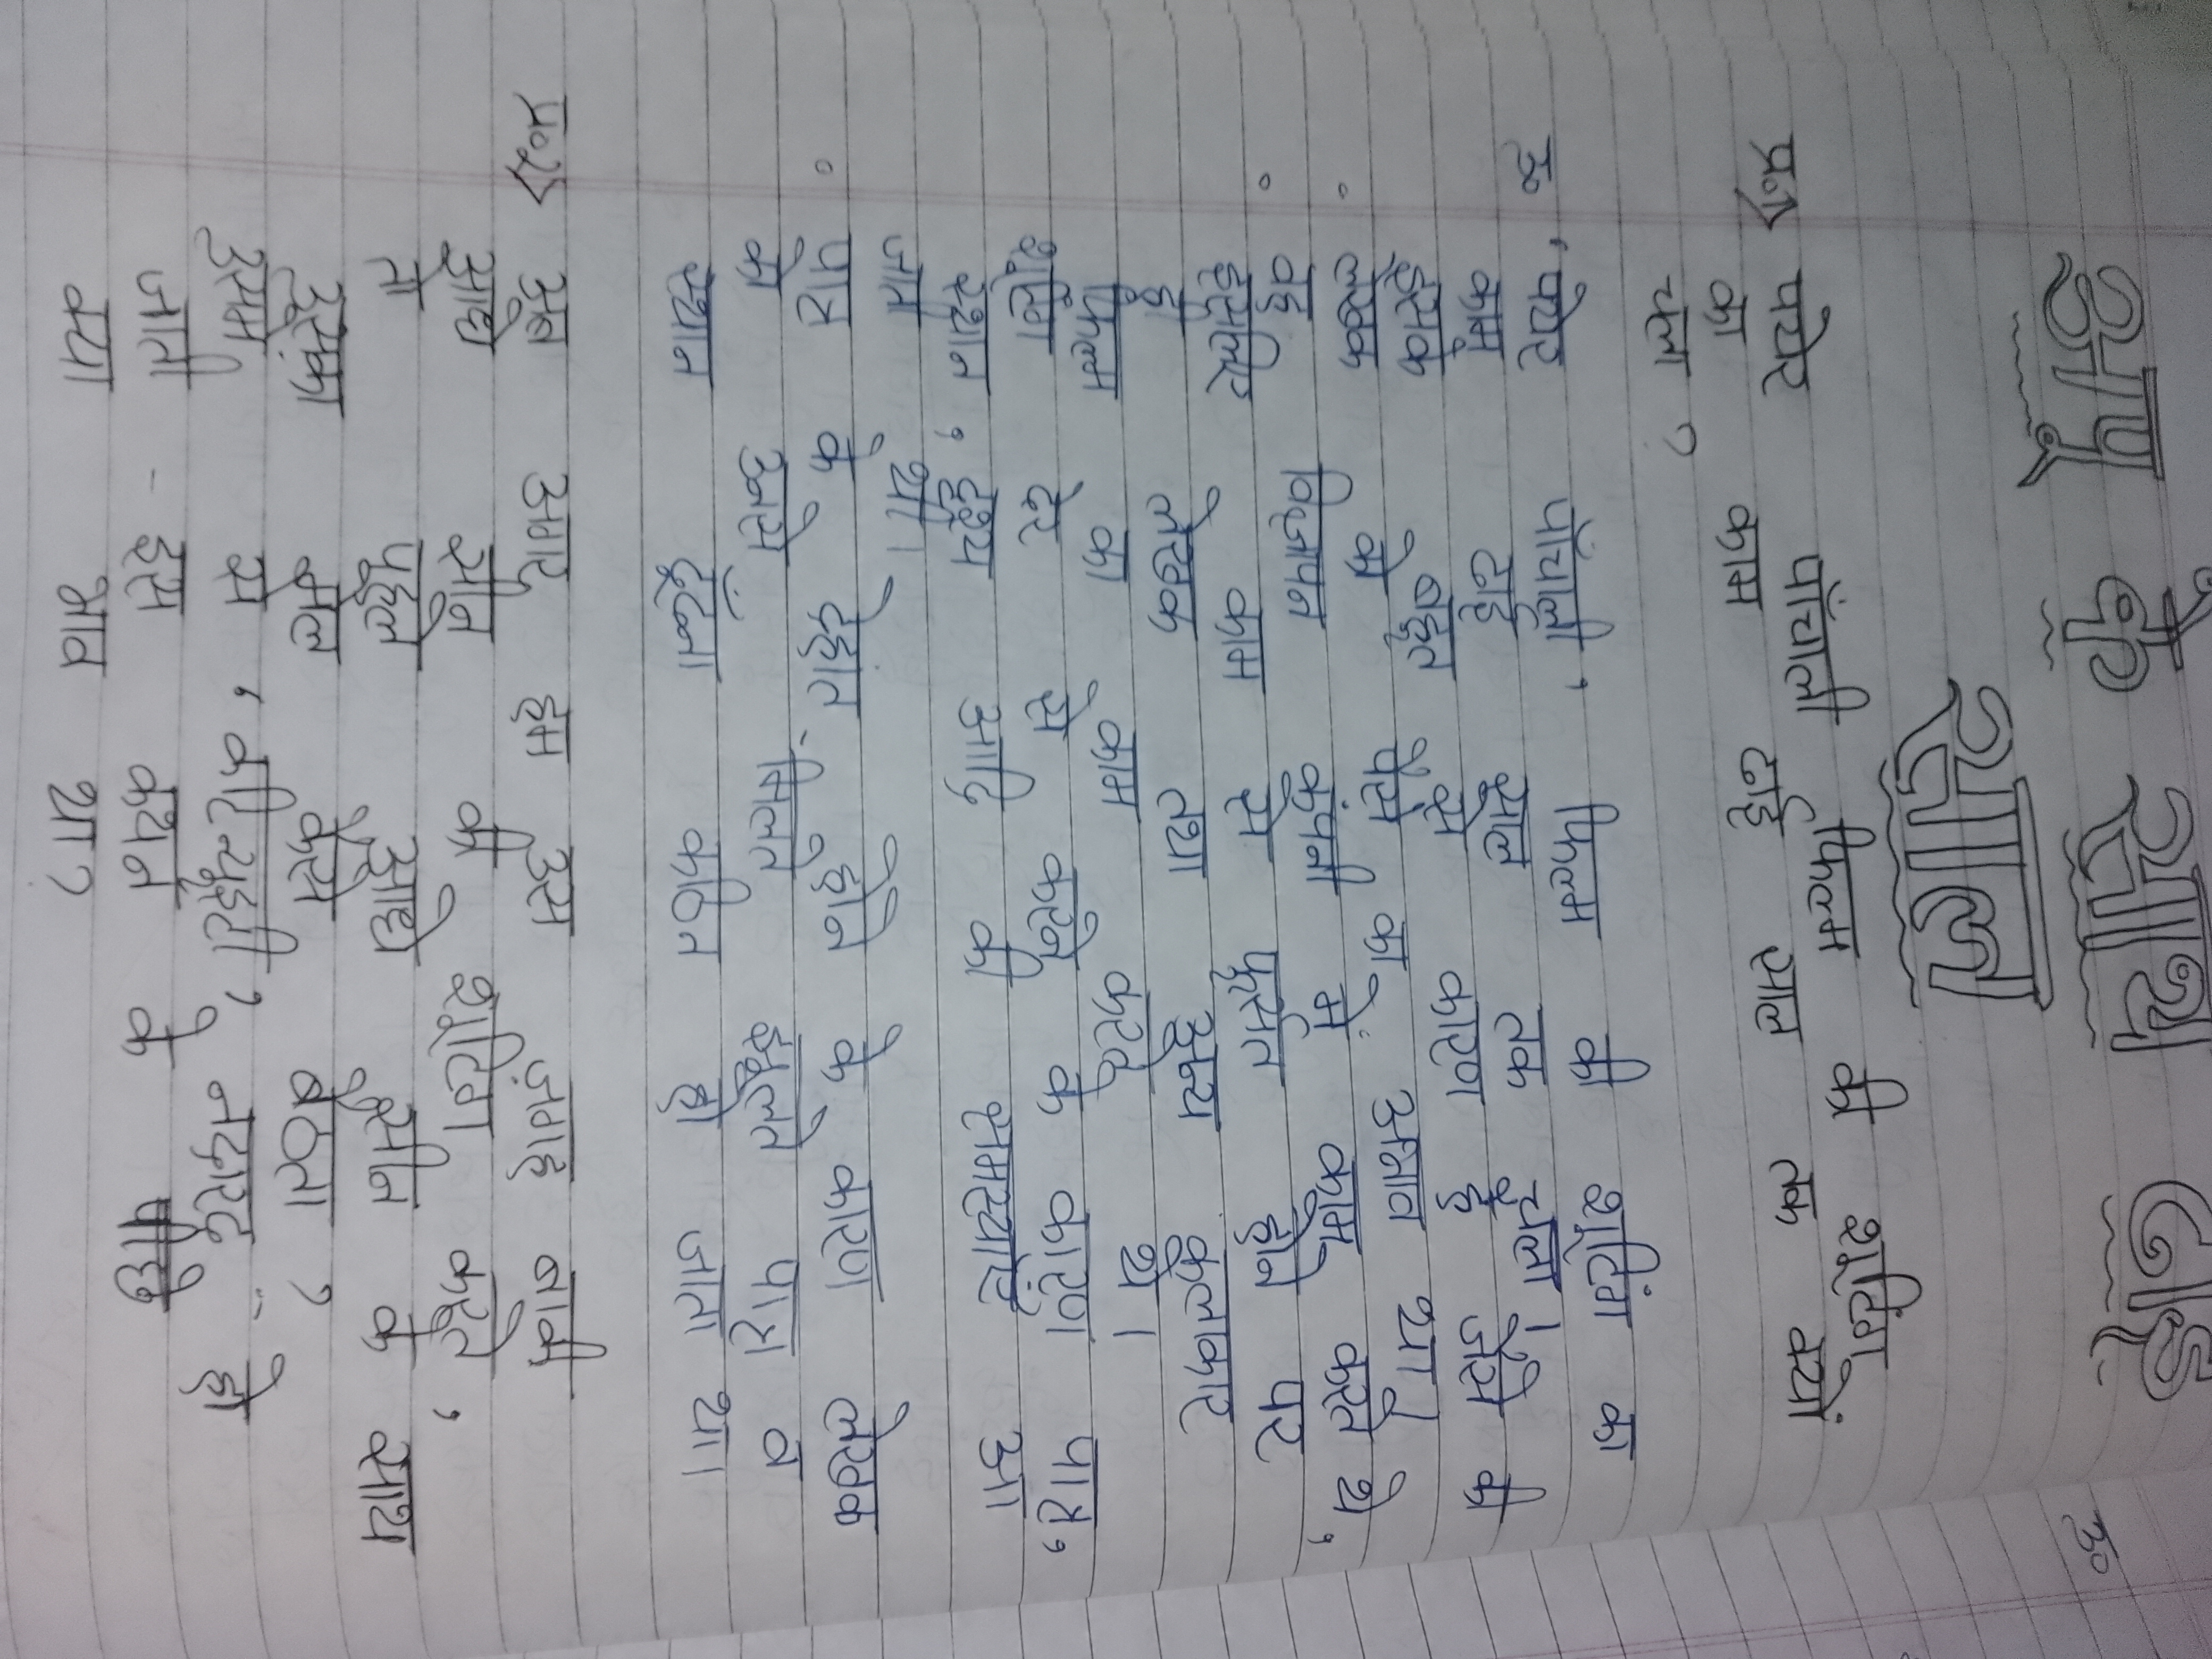 अपू के साथ ढाई
साल
प्र०1> पथेर पांचाली फिल्म की शूटिंग
का काम ढाई साल तक क्यों
चला ?
उ० ' पथेर पाँचाली ' फिल्म की शूटिंग का
काम ढाई साल तक चला। जैसे की
इसके बहुत से कारण है
◦ लेखक को पैसे का अभाव था।
वह विज्ञापन कंपनी में काम करते थे,
◦ इसलिए काम से फुर्सत होने पर
ही लेखक तथा दृश्य कलाकार
फिल्म का काम करते थे।
शूटिंग देर से करने के कारण पात्र,
स्थान , दृश्य आदि की समस्याएँ आ
जाती थी।
◦ पात्र के देहांत होने के कारण लेखक
को उनसे मिलते झूलते पात्र व
स्थान ढूंढना कठिन हो जाता था।
प्र०2> अब अगर हम उस जगह बाकी
आधे सीन की शूटिंग करते ,
तो पहले आधे सीन के साथ
उसका मेल कैसे बैठता ?
उसमें से ' कंटिन्यूइटी ' नदारद हो
जाती - इस कथन के पीछे
क्या भाव था?
उ०